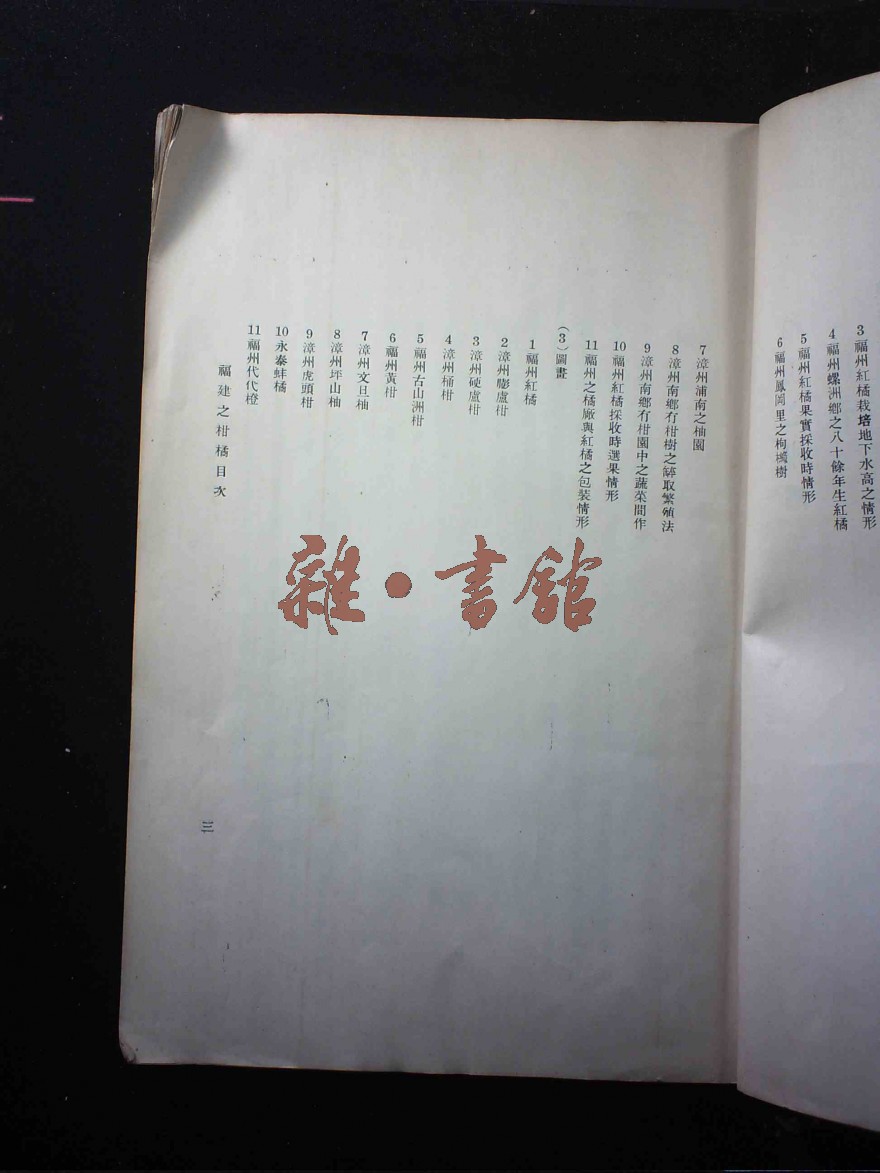 3 福州紅橘栽培地下水高之情形
4 福州螺洲鄉之八十餘年生紅橘
5 福州紅橘果實採收時情形
6 福州鳳岡里之枸櫞樹
7 漳州浦南之柚園
8 漳州南鄉冇柑樹之碎取繁殖法
9 漳州南鄉冇柑園中之蔬菜間作
10 福州紅橘採收時選果情形
11 福州之橘廠與紅橘之包裝情形
(3) 圖畫
1 福州紅橘
2 漳州膨盧柑
3 漳州硬盧柑
4 漳州桶柑
5 福州古山洲柑
6 福州黃柑
7 漳州文旦柚
8 漳州坪山柚
9 漳州虎頭柑
10 永泰蚌橘
11 福州代代橙
福建之柑橘目次
三
雜·書館